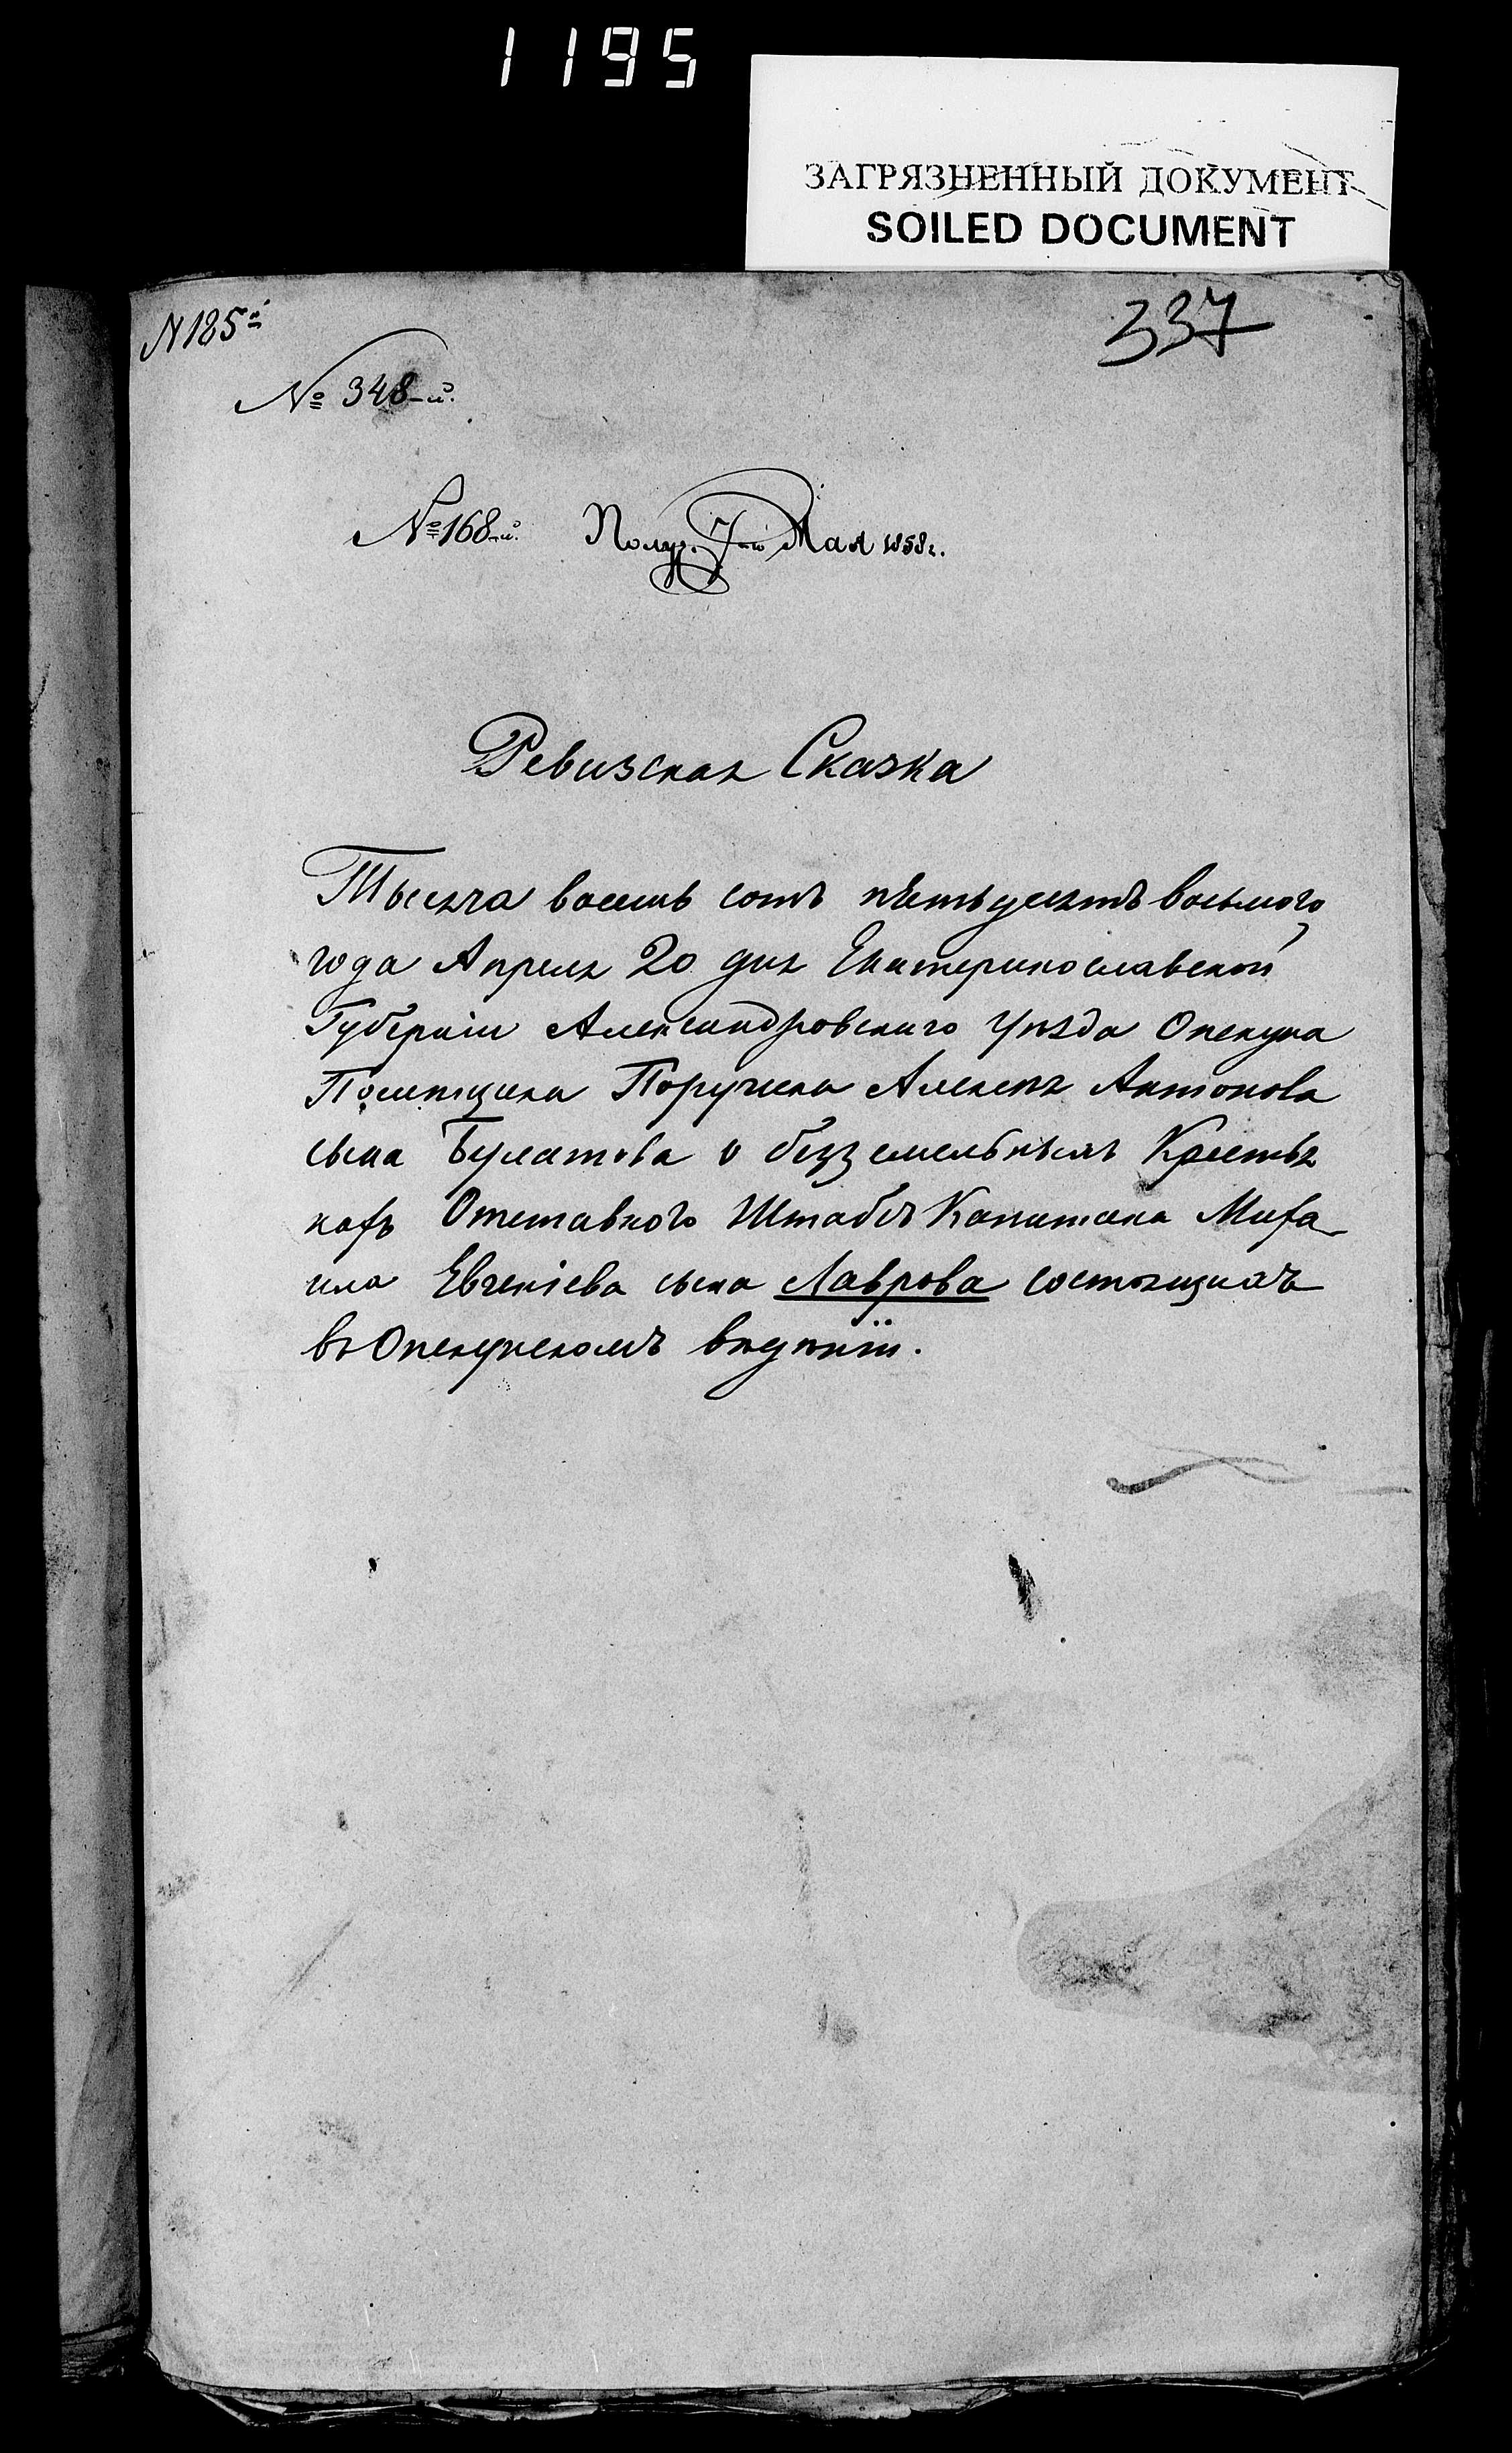 1195
ЗАГРЯЗНЕННЫЙ ДОКУМЕНТ
SOILED DOCUMENT
N 185й
337
№ 348-й.
№ 168-й. Получ. 7-го Мая 1858 г.
Ревизская Сказка
Тысяча восемь сотъ пятьдесятъ восьмого
года Апреля 20 дня Екатеринославской
Губерніи Александровскаго Уѣзда Опекуна
Помѣщика Поручика Алексѣя Антонова
сына Булатова о безземельныхъ Крестья
нахъ Отставного Штабсъ Капитана Миха
ила Евгеніева сына Лаврова состоящихъ
въ Опекунскомъ вѣдѣніи.